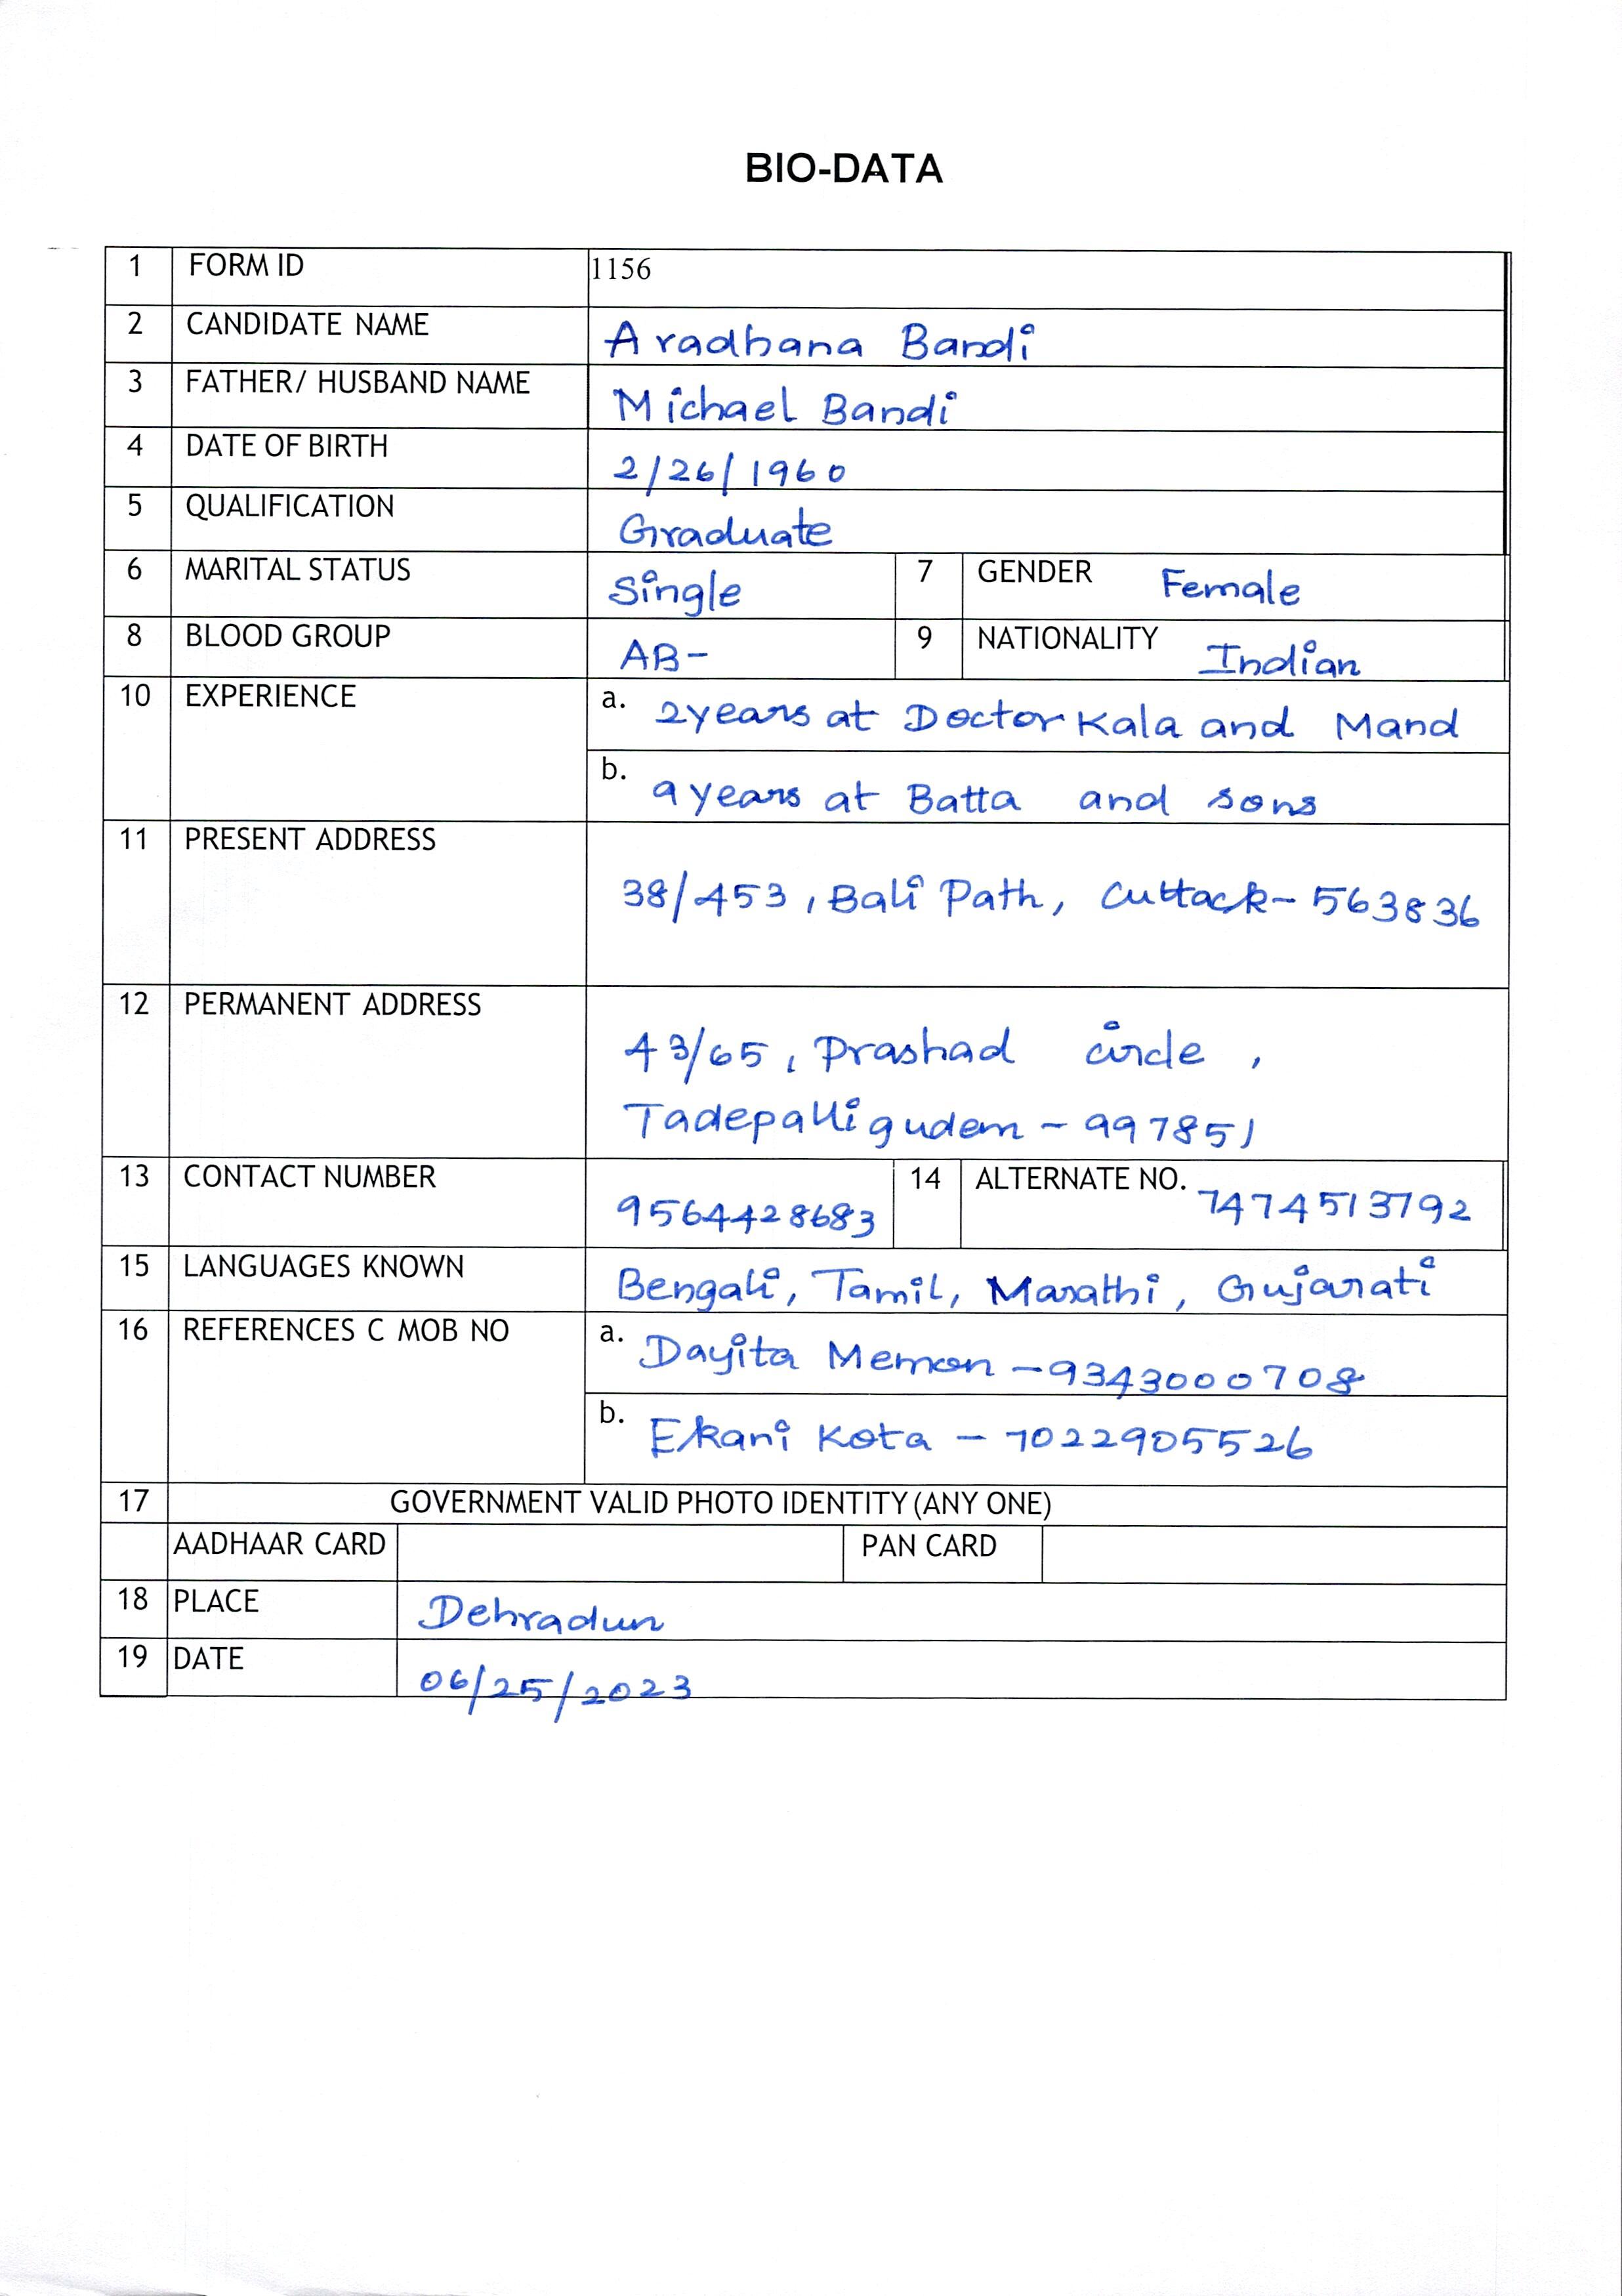 BIO-DATA
1 FORM ID 1156
2 CANDIDATE NAME Aradhana Bandi
3 FATHER/ HUSBAND NAME Michael Bandi
4 DATE OF BIRTH 2/26/1960
5 QUALIFICATION Graduate
6 MARITAL STATUS Single 7 GENDER Female
8 BLOOD GROUP AB- 9 NATIONALITY Indian
10 EXPERIENCE a. 2years at Doctor Kala and Mand
b. 9 years at Batta and sons
11 PRESENT ADDRESS
38/453, Bali Path, Cuttack- 563836
12 PERMANENT ADDRESS
43/65, Prashad circle,
Tadepalligudem - 997851
13 CONTACT NUMBER 9564428683 14 ALTERNATE NO. 7474513792
15 LANGUAGES KNOWN Bengali, Tamil, Marathi, Gujarati
16 REFERENCES C MOB NO a. Dayita Memon - 9343000708
b. Ekani Kota - 7022905526
17 GOVERNMENT VALID PHOTO IDENTITY (ANY ONE)
AADHAAR CARD PAN CARD
18 PLACE Dehradun
19 DATE 06/25/2023